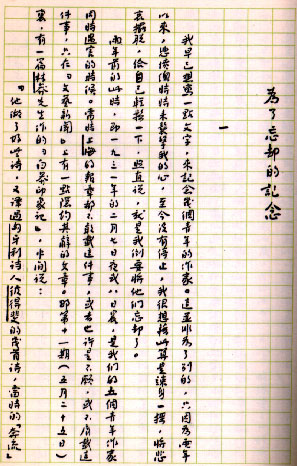 為了忘卻的記念
一
我早已想寫一點文字，來記念幾個青年的作家。這並非為了別的，只因為兩年
以來，悲憤總時時來襲擊我的心，至今沒有停止，我很想藉此算是竦身一搖，將悲
哀擺脫，給自己輕鬆一下，照直說，就是我倒要將他們忘卻了。
兩年前的此時，即一九三一年的二月七日夜或八日晨，是我們的五個青年作家
同時遇害的時候。當時上海的報章都不敢載這件事，或者也許是不願，或不屑載這
件事，只在「文藝新聞」上有一點隱約其辭的文章。那第十一期（五月二十五日）
裏，有一篇林莽先生作的「白莽印象記」，中間說：
「他做了好些詩，又譯過匈牙利詩人彼得斐的幾首詩，當時的「奔流」